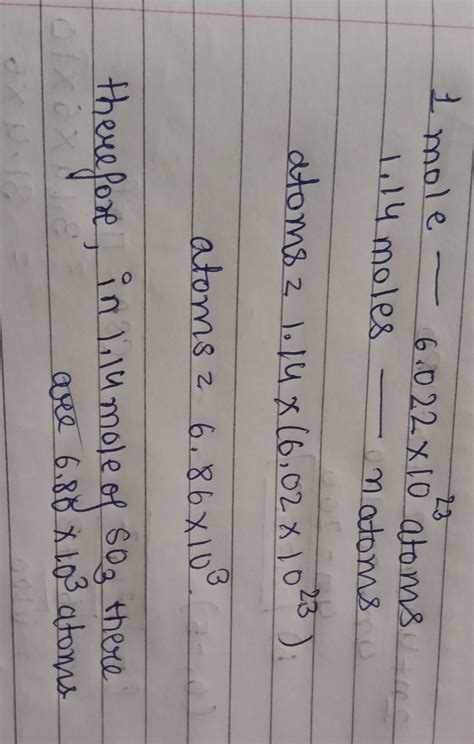 1 mole — 6.022×10²³ atoms
1.14 moles — n atoms
atoms = 1.14×(6.02×10²³)
atoms = 6.86×10³
therefore, in 1.14 mole of SO₃ there
are 6.86×10³ atoms